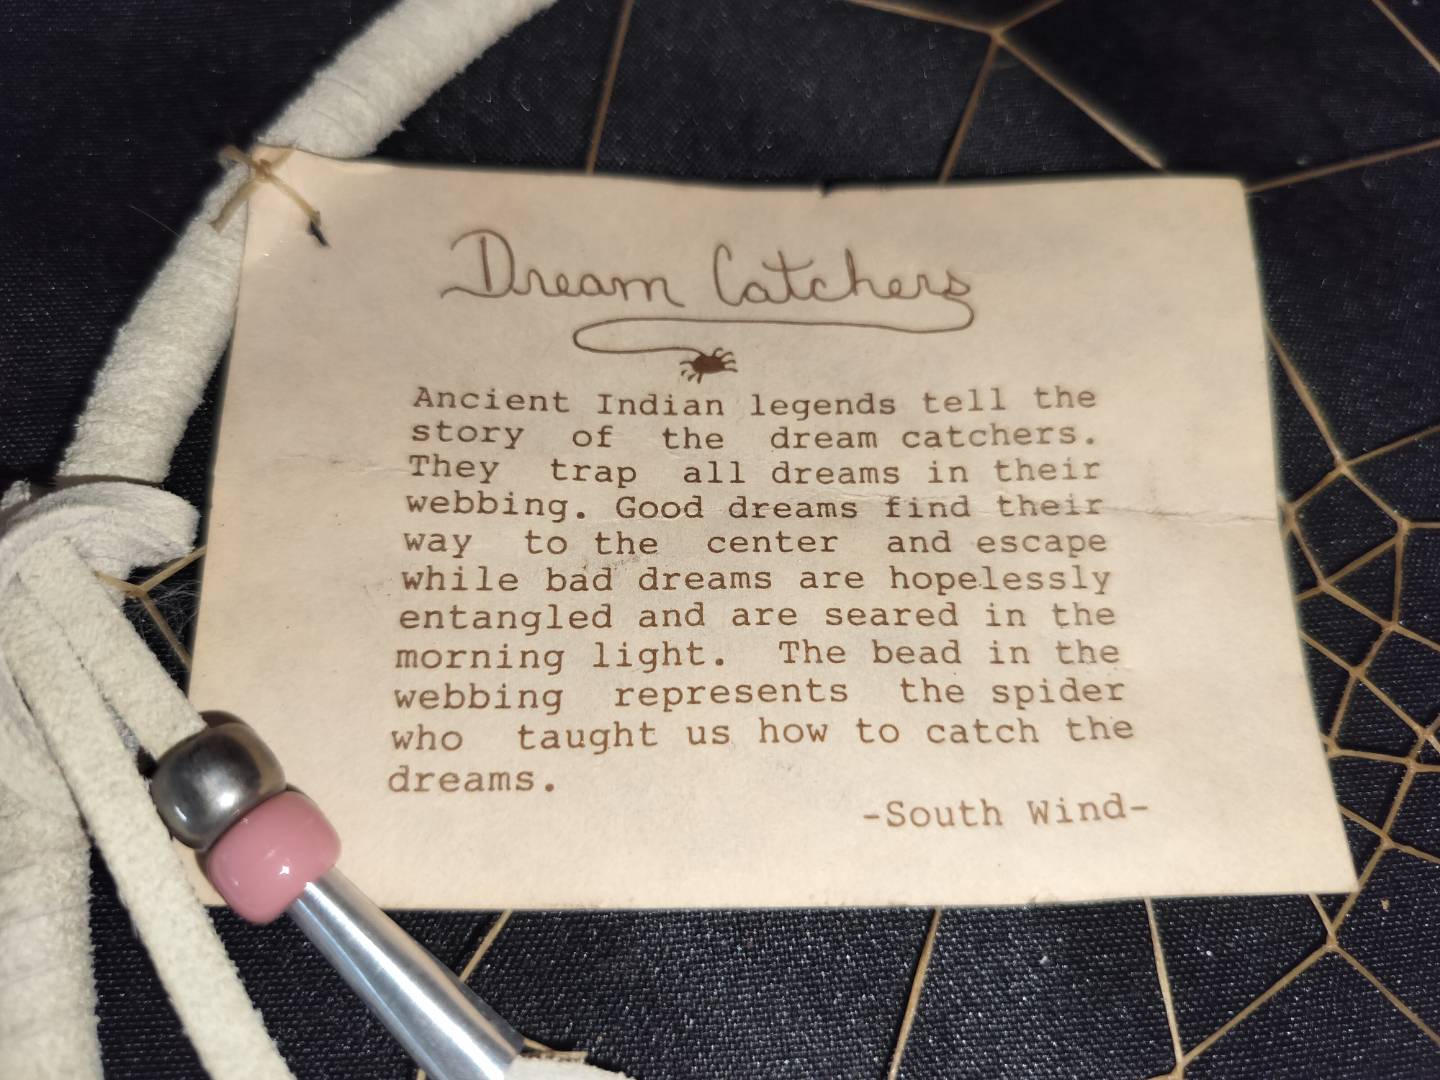 Dream Catchers
Ancient Indian legends tell the
story of the dream catchers.
They trap all dreams in their
webbing. Good dreams find their
way to the center and escape
while bad dreams are hopelessly
entangled and are seared in the
morning light. The bead in the
webbing represents the spider
who taught us how to catch the
dreams.
-South Wind-